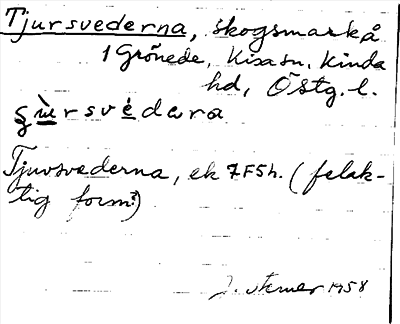 Tjursvederna, skogsmark å
1 Grönede, Kisa sn, Kinda
hd, Östg. l.
ʒùrsvédara
Tjuvsvederna, ek 7F5h. (felak-
tig form?)
1958